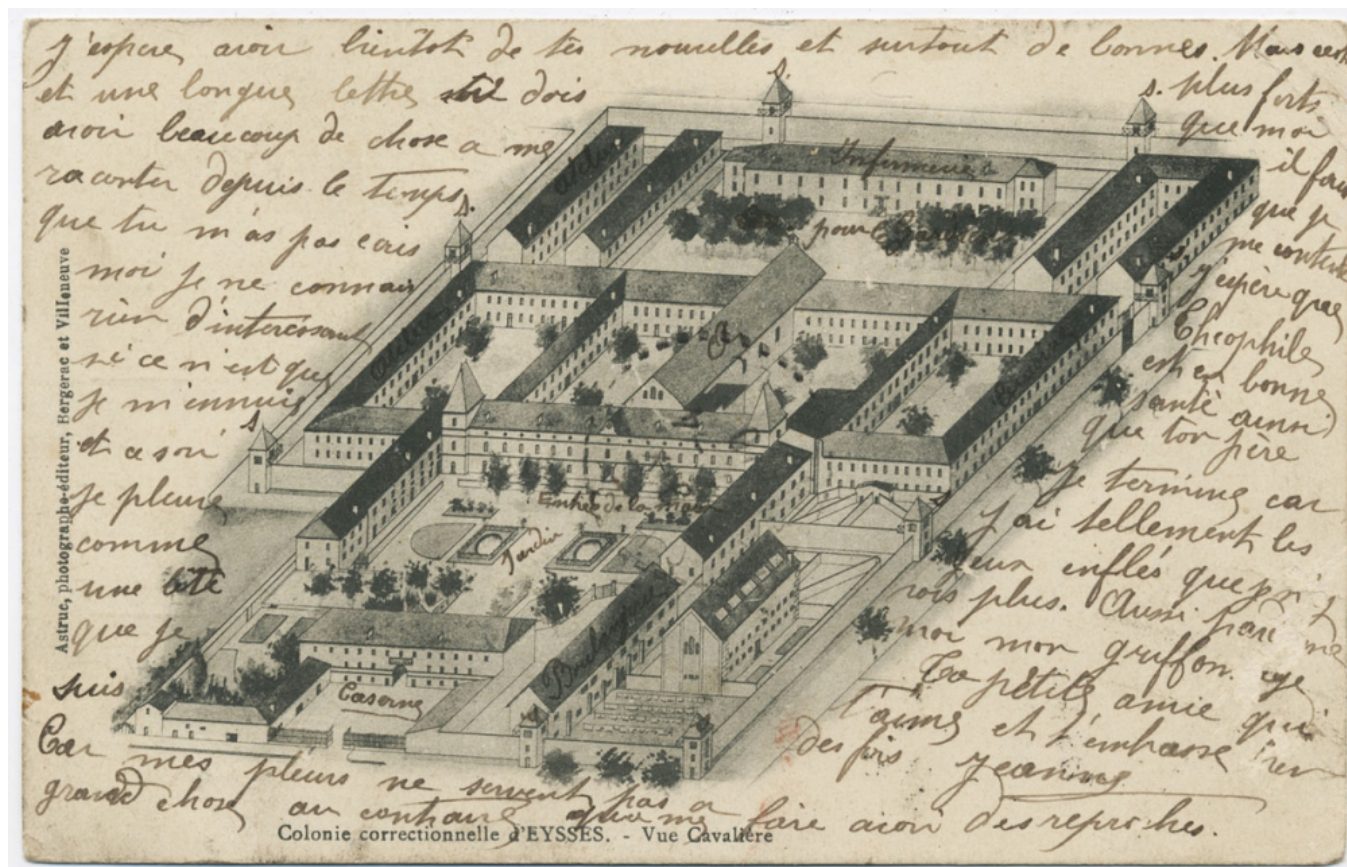 J'espere avoir bientôt de tes nouvelles et surtout de bonnes. Mais cest
et une longue lettre tu dois
avoir beaucoup de chose a me
raconter depuis le temps
que tu m'as pas ecris
moi je ne connais
rien d'interessant
si ce n'est que
je m'ennuie
et ce soir
je pleure
comme
une bête
que je
suis
Car mes pleurs ne servent pas a
grand chose au contraire que me faire avoir des reproches.
plus forts
que moi
il faut
que je
me contente
j'espère que
Théophile
est en bonne
santé ainsi
que ton père
Je termine car
j'ai tellement les
yeux enflés que je n'y
vois plus. Aussi
moi mon griffon.
Ta petite amie qui
t'aime et t'embrasse
des fois Jeanne
s.
s.
s.
s.
s.
atelier
Infirmerie
pour
atelier
Entrée de la
Jardin
Boulangerie
Caserne
Astruc, photographe-éditeur, Bergerac et Villeneuve
Colonie correctionnelle d'EYSSES. - Vue Cavalière